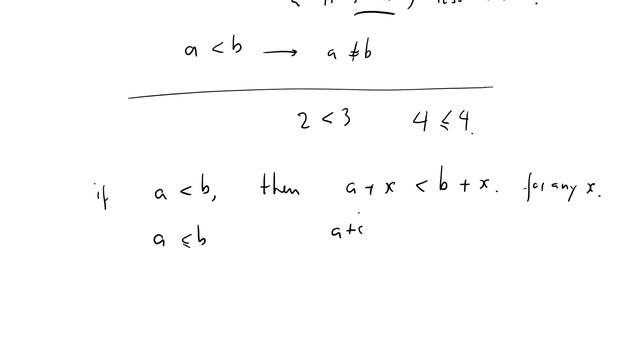 a < b → a ≠ b
2 < 3 4 ≤ 4.
if a < b, then a + x < b + x. for any x.
a ≤ b a +